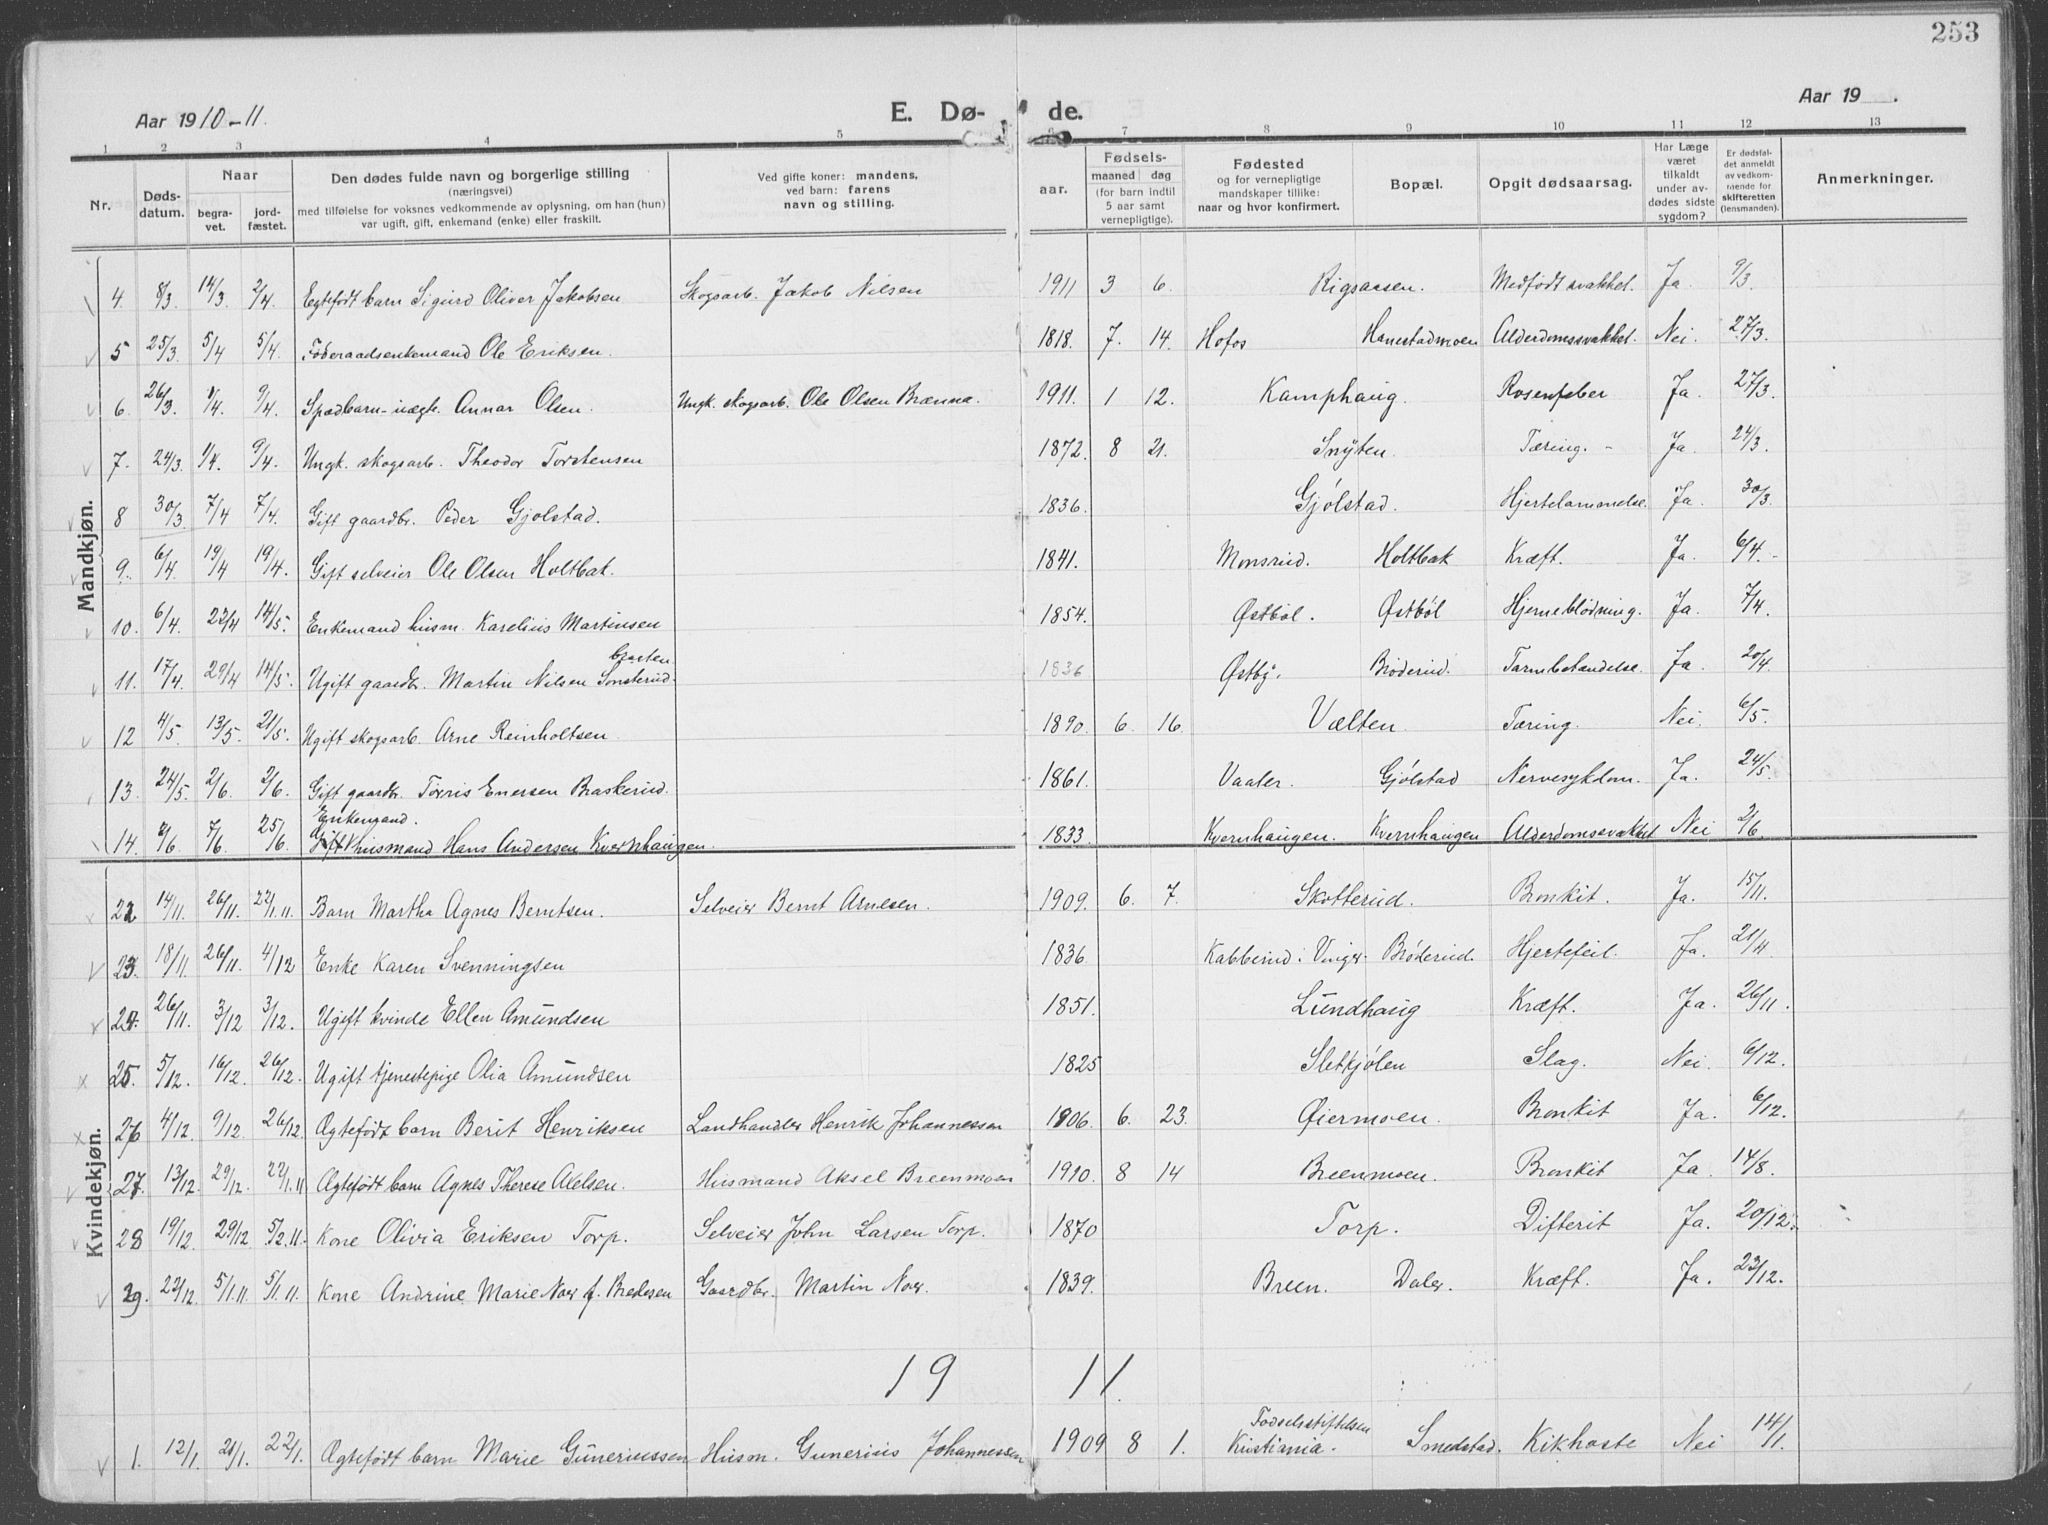 253
Aar 1910-11. E. Dø- de. Aar 19 .
1 2 3 4 5 6 7 8 9 10 11 12 13
Nr. Døds-datum. Naar begra-vet. jord-fæstet. Den dødes fulde navn og borgerlige stilling (næringsvei) med tilføielse for voksnes vedkommende av oplysning, om han (hun) var ugift, gift, enkemand (enke) eller fraskilt. Ved gifte koner: mandens, ved barn: farens navn og stilling. aar. Fødsels- maaned dag (for barn indtil 5 aar samt vernepligtige). Fødested og for vernepligtige mandskaper tillike: naar og hvor konfirmert. Bopæl. Opgit dødsaarsag. Har Læge været tilkaldt under av-dødes sidste sygdom? Er dødsfal-det anmeldt av vedkom-mende for skifteretten (lensmanden). Anmerkninger.
Mandkjøn.
4. 8/3 14/3 2/4. Egtefødt barn Sigurd Oliver Jakobsen Skogsarb. Jakob Nilsen 1911 3 6. Rigsaasen. Medfødt svakhet. Ja. 9/3
5 25/3. 5/4 5/4. Føderaadsenkemand Ole Eriksen. 1818. 7. 14. Hofos Hanestadmoen Alderdomssvakhet. Nei. 27/3.
6. 26/3. 9/4. 9/4. Spædbarn-uægte. Annar Olsen. Ungk. skogsarb. Ole Olsen Brænna. 1911. 1 12. Kamphaug. Rosenfeber Ja. 27/3.
7. 24/3. 9/4. 9/4. Ungk. skogsarb. Theodor Torstensen 1872. 8 21. Snyten. Tæring. - Ja. 24/3.
8 30/3 7/4 7/4. Gift gaardbr. Peder Gjølstad. 1836. Gjølstad. Hjertelammelse. Ja. 30/3.
9. 6/4. 19/4 19/4. Gift selveier Ole Olsen Holtbak. 1841. Monsrud. Holtbak Kræft. Ja. 6/4.
10. 6/4. 22/4 14/5. Enkemand husm. Karelius Martinsen 1854. Østbøl. Østbøl Hjerneblødning. Ja. 7/4.
11. 17/4. 29/4 14/5. Ugift gaardbr. Martin Nilsen Sonsterud. 1836 Østby. Brøderud. Tarmbetændelse. Ja. 20/4.
12 4/5. 13/5. 21/5. Ugift skogsarb. Arne Reinholtsen. 1890. 6. 16. Vælten. Tæring. Nei. 6/5.
13. 24/5. 2/6. 2/6. Gift gaardbr. Torris Enersen Braskerud. 1861. Vaaler. Gjølstad Nervesykdom. Ja. 24/5.
Enkemand.
14. 2/6. 7/6. 25/6. Gift husmand Hans Andersen Kvernhaugen. 1833. Kvernhaugen. Kvernhaugen Alderdomssvakhet Nei 2/6
Kvindekjøn.
22 14/11. 26/11. 22/1.11. Barn Martha Agnes Berntsen. Selveier Bernt Arnesen. 1909. 6. 7. Skotterud. Bronkit. Ja. 15/11.
23. 18/11. 26/11. 4/12 Enke Karen Svenningsen 1836 Kabberud i Vinger. Brøderud. Hjertefeil. Ja. 21/11
24. 26/11. 3/12 3/12. Ugift kvinde Ellen Amundsen 1851. Lundhaug Kræft. Ja. 26/11.
25. 5/12. 16/12. 26/12. Ugift tjenestepige Olia Amundsen 1825 Sletkjølen Slag. Nei. 6/12.
26 4/12. 9/12. 26/12 Ægtefødt barn Berit Henriksen Landhandler Henrik Johannessen 1906. 6. 23. Øiermoen. Bronkit Ja. 6/12.
27. 13/12. 29/12. 22/1.11 Ægtefødt barn Agnes Therese Axelsen. Husmand Aksel Breenmoen 1910. 8 14 Breenmoen. Bronkit Ja 14/8.
28 19/12. 29/12 5/2.11. Kone Olivia Eriksen Torp. Selveier John Larsen Torp. 1870 Torp. Difterit Ja. 20/12.
29. 22/12. 5/1.11 5/1.11. Kone Andrine Marie Noer f. Bredesen Gaardbr. Martin Noer. 1839. Breen. Daler Kræft. Ja. 23/12.
19 11.
1. 12/1. 21/1. 22/1. Ægtefødt barn Marie Guneriussen Husm. Gunerius Johannessen 1909 8 1. Fødselsstiftelsen Kristiania. Smedstad. Kikhoste Nei 14/1.